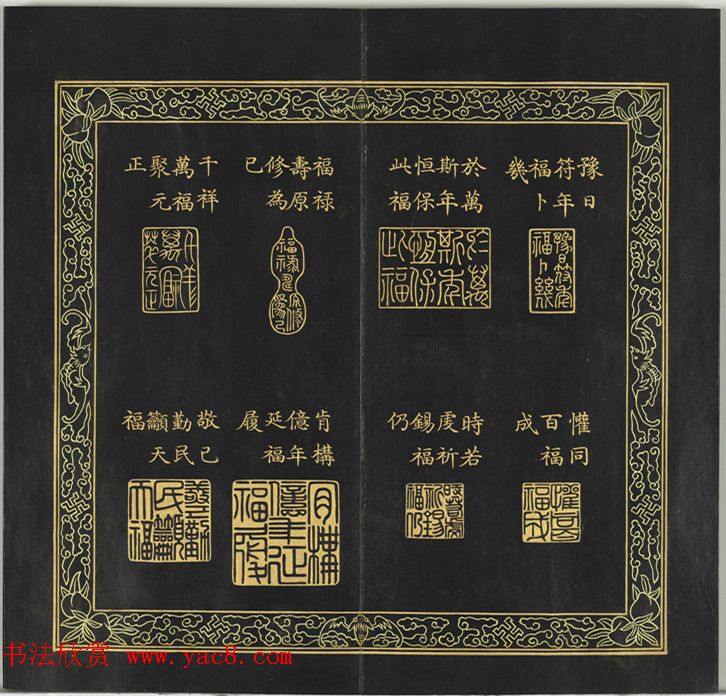 豫日
符年
福卜
幾
於萬
斯年
恒保
此福
福祿
壽原
修為
已
千祥
萬福
聚元
正
懽同
百福
成
時若
虔祈
錫福
仍
肯構
億年
延福
履
敬已
勤民
籲天
福
书法欣赏 www.yac8.com